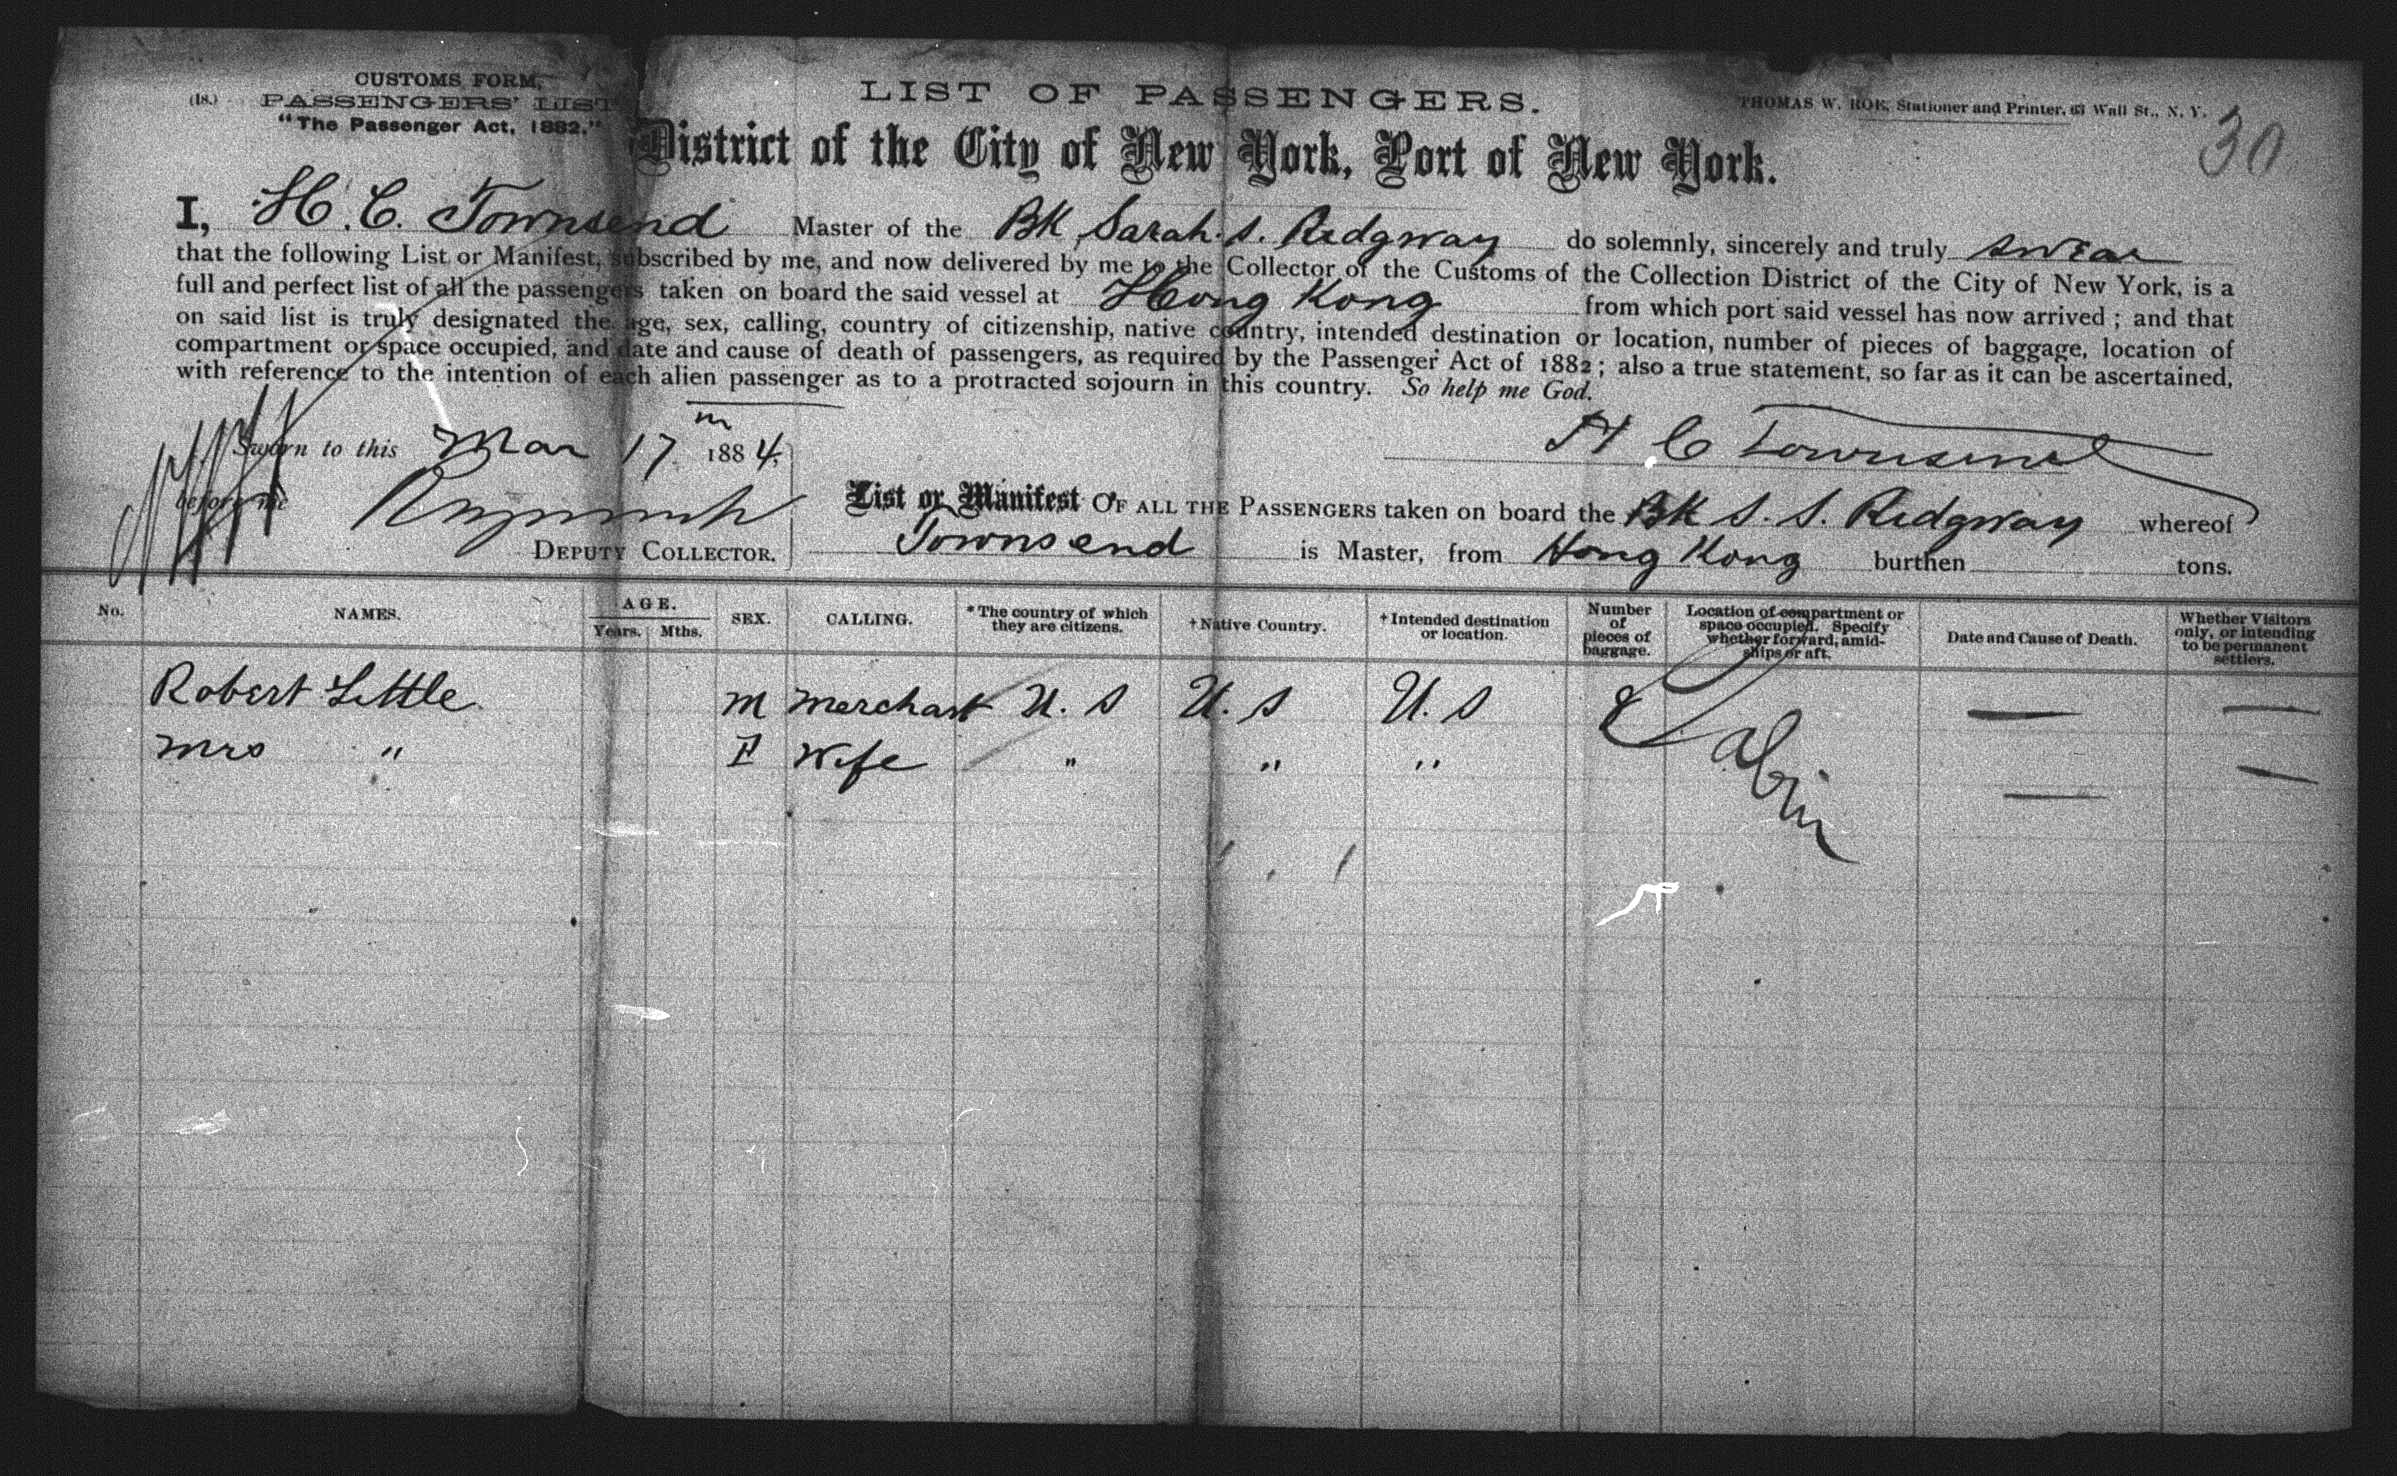 CUSTOMS FORM,
(18.) PASSENGERS' LIST
"The Passenger Act, 1882."
LIST OF PASSENGERS.
THOMAS W. ROE, Stationer and Printer, 63 Wall St., N. Y.
30
District of the City of New York, Port of New York.
I, H. C. Townsend Master of the Bk Sarah. S. Ridgway do solemnly, sincerely and truly swear
that the following List or Manifest, subscribed by me, and now delivered by me to the Collector of the Customs of the Collection District of the City of New York, is a
full and perfect list of all the passengers taken on board the said vessel at Hong Kong from which port said vessel has now arrived; and that
on said list is truly designated the age, sex, calling, country of citizenship, native country, intended destination or location, number of pieces of baggage, location of
compartment or space occupied, and date and cause of death of passengers, as required by the Passenger Act of 1882; also a true statement, so far as it can be ascertained,
with reference to the intention of each alien passenger as to a protracted sojourn in this country. So help me God.
Sworn to this Mar 17 1884,
H C Townsend
before me
DEPUTY COLLECTOR.
List or Manifest OF ALL THE PASSENGERS taken on board the Bk S. S. Ridgway whereof
Townsend is Master, from Hong Kong burthen tons.
No. NAMES. AGE. Years. Mths. SEX. CALLING. *The country of which they are citizens. †Native Country. †Intended destination or location. Number of pieces of baggage. Location of compartment or space occupied. Specify whether forward, amidships or aft. Date and Cause of Death. Whether Visitors only, or intending to be permanent settlers.
Robert Little M Merchant U. S U. S U. S Cabin —— ——
Mrs " F Wife " " " —— ——